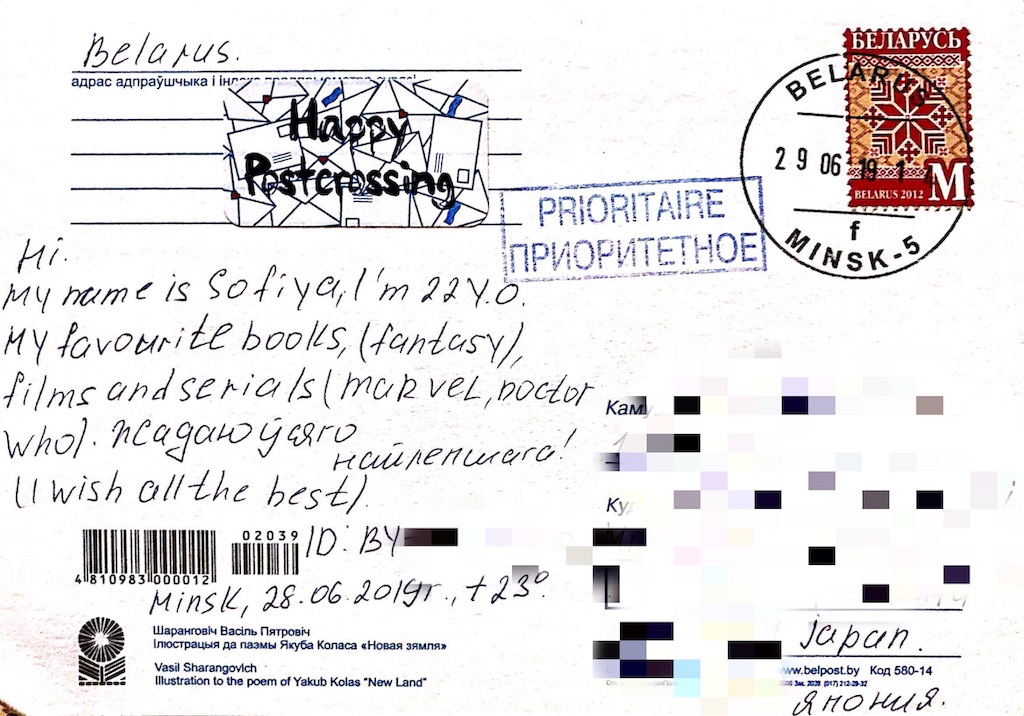 Belarus.
адрас адпраўшчыка і індэкс
Happy
Postcrossing
БЕЛАРУСЬ
M
BELARUS 2012
BELARUS
29 06 19
f
MINSK-5
PRIORITAIRE
ПРИОРИТЕТНОЕ
Hi.
My name is Sofiya, I'm 22 y.o.
My favourite books, (fantasy),
films and serials (marvel, Doctor
Who). Жадаю ўсяго
найлепшага!
(I wish all the best).
ID: BY-
Minsk, 28.06.2019г., +23°.
02039
4 810983 000012
Шаранговіч Васіль Пятровіч
Ілюстрацыя да паэмы Якуба Коласа «Новая зямля»
Vasil Sharangovich
Illustration to the poem of Yakub Kolas "New Land"
Каму
Ку
Japan.
www.belpost.by Код 580-14
(017) 212-29-32
Япония.